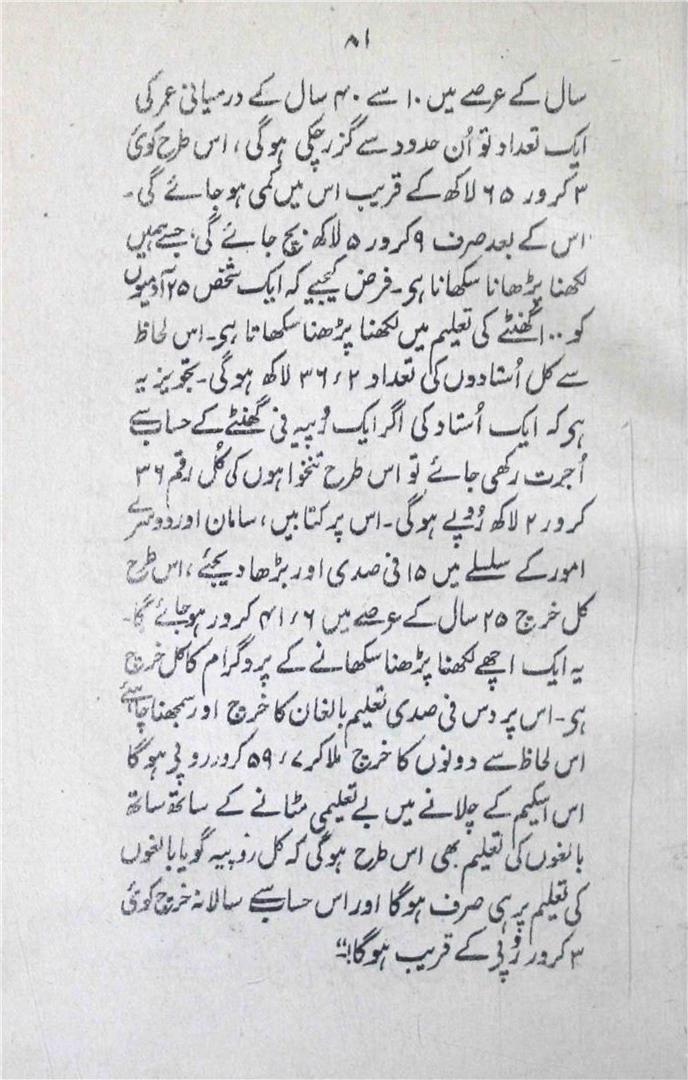 ۸۱
سال کے عرصے میں ۱۰ سے ۴۰ سال کے درمیانی عمر کی
ایک تعداد تو اُن حدود سے گزر چکی ہوگی، اس طرح کوئی
۳ کرور ۶۵ لاکھ کے قریب اس میں کمی ہو جائے گی۔
اس کے بعد صرف ۹ کرور ۵ لاکھ بچ جائے گی، جسے ہمیں
لکھنا پڑھانا سکھانا ہی۔ فرض کیجیے کہ ایک شخص ۲۵ آدمیوں
کو ۱۰۰ گھنٹے کی تعلیم میں لکھنا پڑھنا سکھاتا ہی۔ اس لحاظ
سے کل اُستادوں کی تعداد ۳۶٫۲ لاکھ ہوگی۔ تجویز یہ
ہی کہ ایک اُستاد کی اگر ایک رُپیہ فی گھنٹے کے حساب سے
اُجرت رکھی جائے تو اس طرح تنخواہوں کی کُل رقم ۳۶
کرور ۲ لاکھ رُوپے ہوگی۔ اس پر کتابیں، سامان اور دوسرے
امور کے سلسلے میں ۱۵ فی صدی اور بڑھا دیجئے، اس طرح
کل خرچ ۲۵ سال کے عرصے میں ۴۱٫۶ کرور ہو جائے گا۔
یہ ایک اچھے لکھنا پڑھنا سکھانے کے پروگرام کا کل خرچ
ہی۔ اس پر دس فی صدی تعلیم بالغان کا خرچ اور سمجھنا چاہئے
اس لحاظ سے دونوں کا خرچ ملا کر ۵۹٫۷ کرور روپی ہوگا
اس اسکیم کے چلانے میں بے تعلیمی مٹانے کے ساتھ ساتھ
بالغوں کی تعلیم بھی اس طرح ہوگی کہ کل روپیہ گویا بالغوں
کی تعلیم پر ہی صرف ہوگا اور اس حساب سے سالانہ خرچ کوئی
۳ کرور روپی کے قریب ہوگا!"